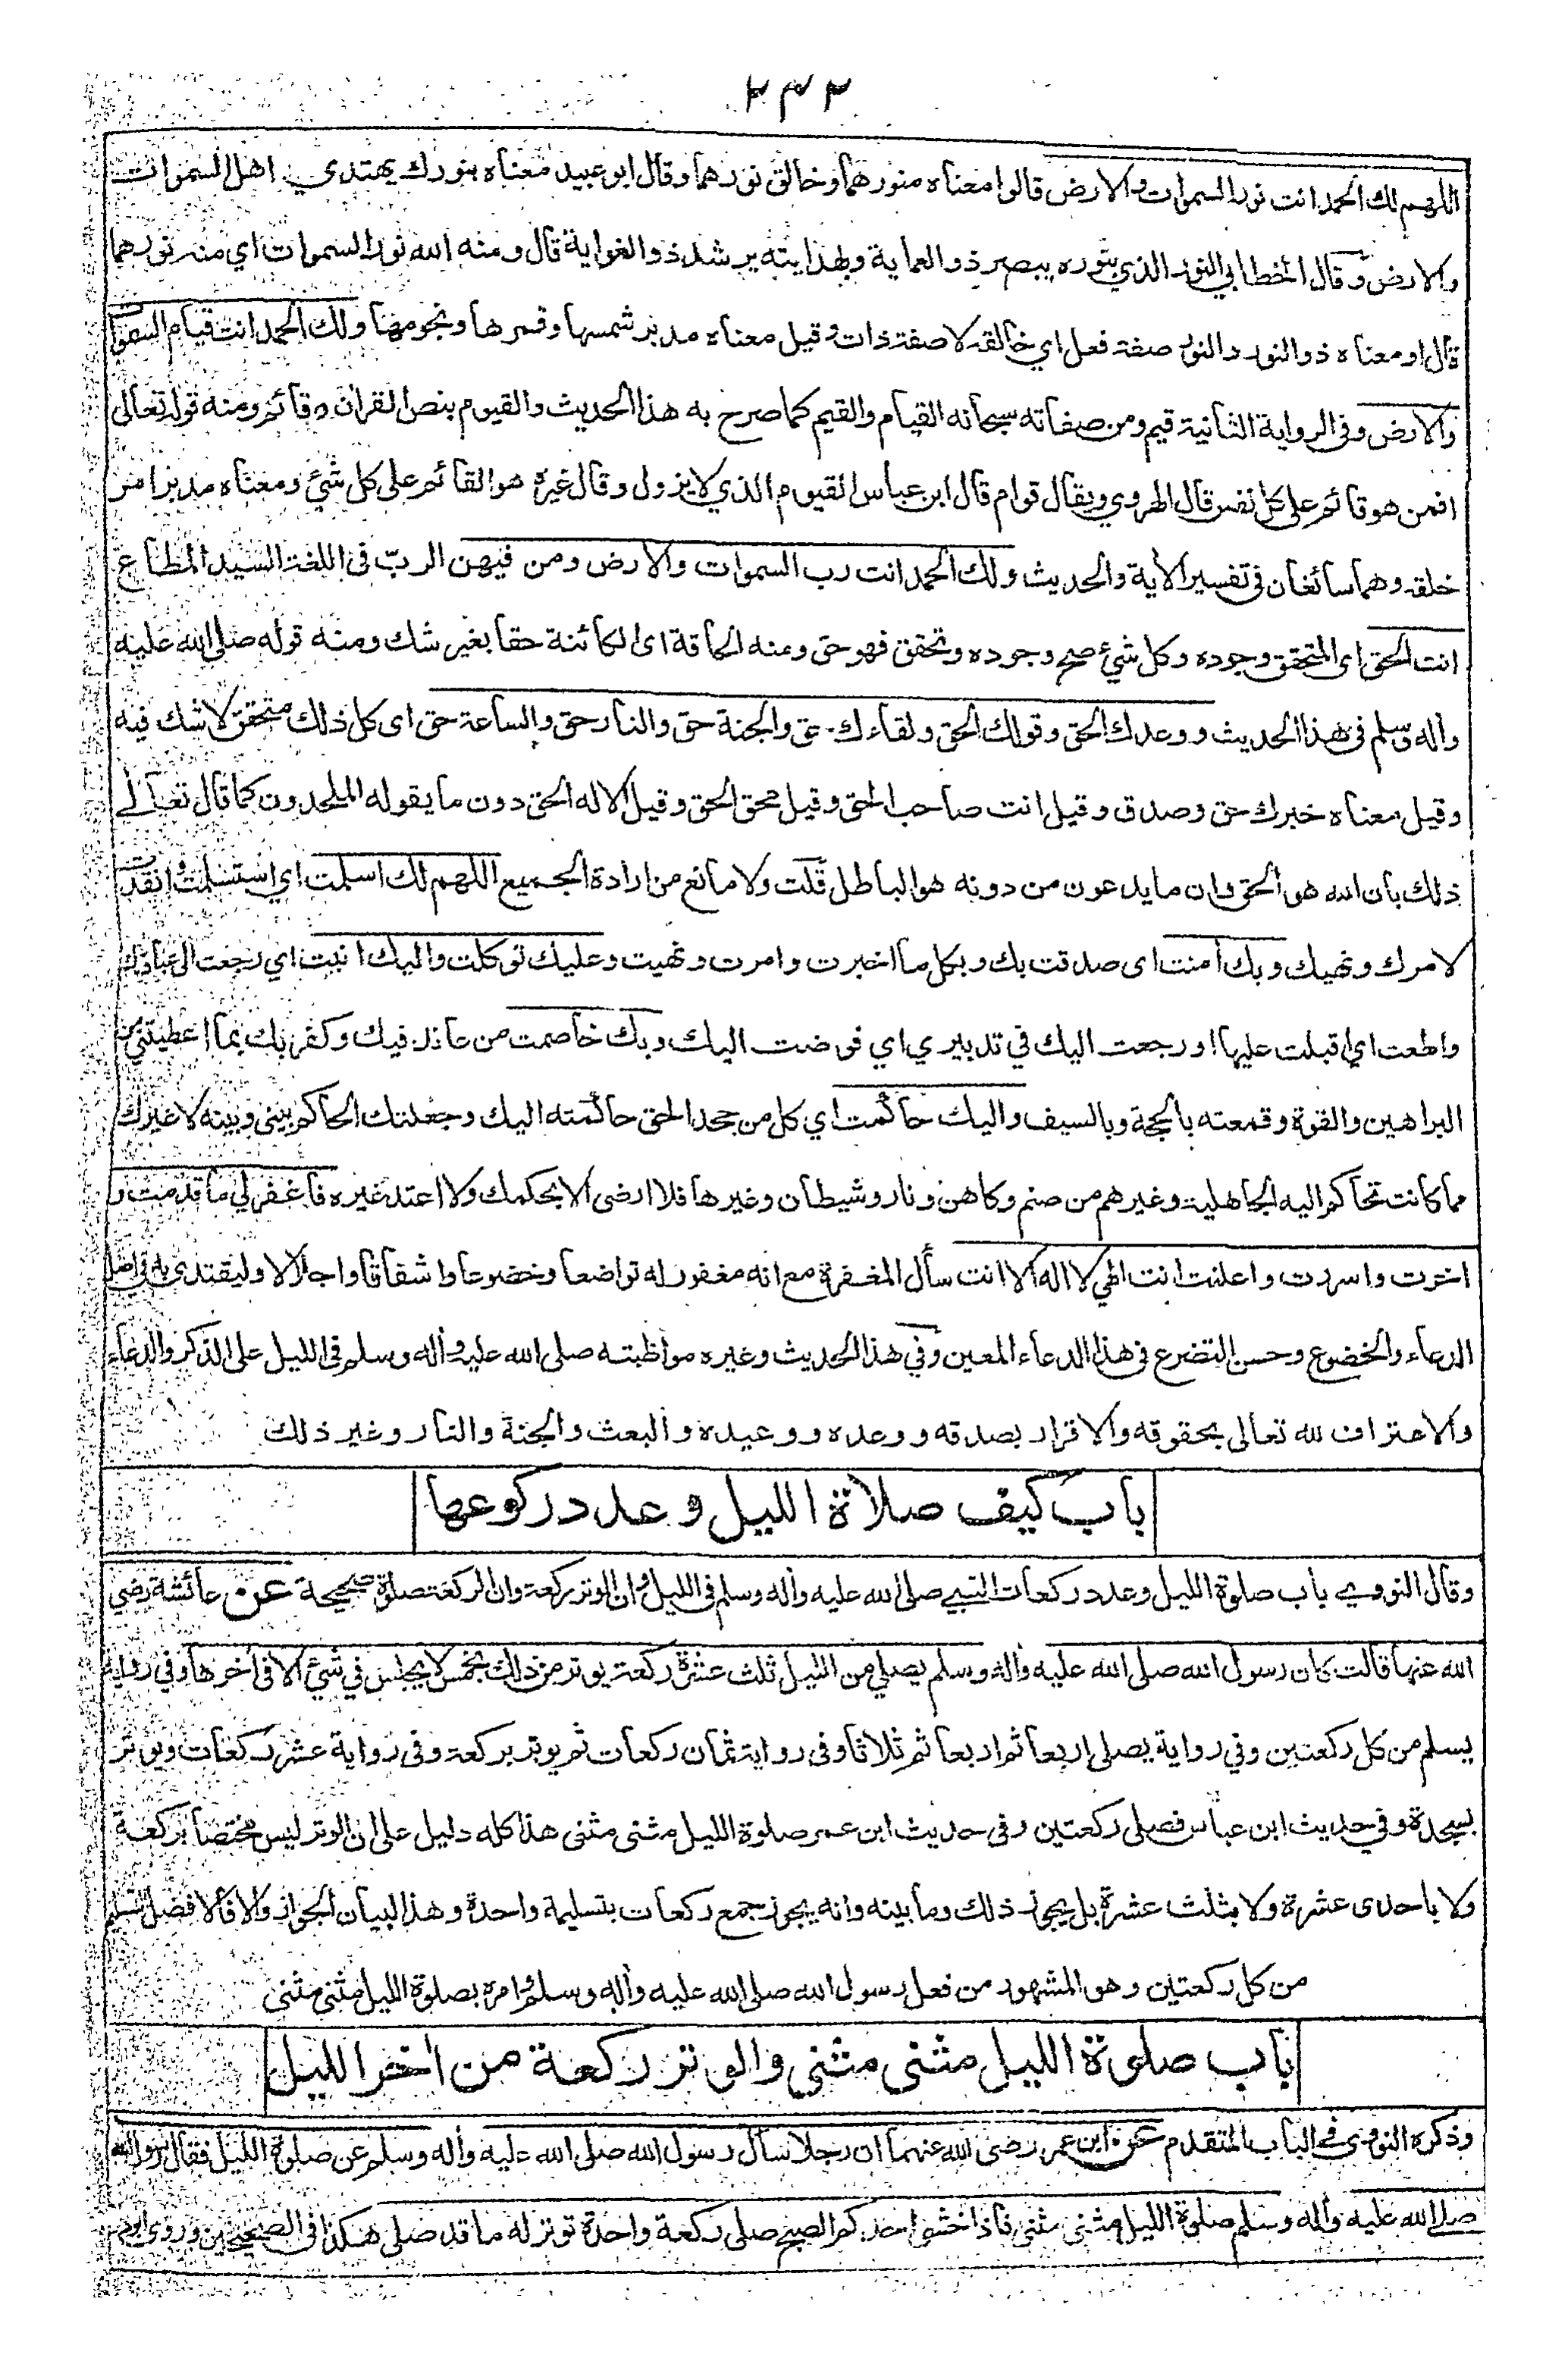 ٢٣٢
اللهم لك الحمد انت نور السموات والارض قالوا معناه منورهما وخالق نورهما وقال ابو عبيد معناه بنورك يهتدي اهل السموات
والارض وقال الخطابي النور الذي بنوره يبصر ذو العماية وبهدايته يرشد ذو الغواية قال ومنه الله نور السموات اي منه نورهما
قال او معناه ذو النور والنور صفة فعل اي خالقه لا صفة ذات وقيل معناه مدبر شمسها وقمرها ونجومها ولك الحمد انت قيام السموات
والارض وفى الرواية الثانية قيم ومن صفاته سبحانه القيام والقيم كما صرح به هذا الحديث والقيوم بنص القران وقائم ومنه قوله تعالى
افمن هو قائم على كل نفس قال الهروي ويقال قوام قال ابن عباس القيوم الذي لا يزول وقال غيره هو القائم على كل شئ ومعناه مدبر امر
خلقه وهما سائغان فى تفسير الأية والحديث ولك الحمد انت رب السموات والارض ومن فيهن الربّ فى اللغة السيد المطاع
انت الحق اى المتحقق وجوده وكل شئ صح وجوده وتحقق فهو حق ومنه الحاقة اى الكائنة حقا بغير شك ومنه قوله صلى الله عليه
واله وسلم فى هذا الحديث ووعدك الحق وقولك الحق ولقاءك حق والجنة حق والنار حق والساعة حق اى كل ذلك متحقق لا شك فيه
وقيل معناه خبرك حق وصدق وقيل انت صاحب الحق وقيل محق الحق وقيل الاله الحق دون ما يقوله الملحدون كما قال تعالى
ذلك بان الله هو الحق وان ما يدعون من دونه هو الباطل قلت ولا مانع من ارادة الجميع اللهم لك اسلمت اي استسلمت وانقدت
لامرك ونهيك وبك أمنت اى صدقت بك وبكل ما اخبرت وامرت ونهيت وعليك توكلت واليك انبت اي رجعت الى عبادتك
واطعت اي اقبلت عليها او رجعت اليك في تدبيري اي فوضت اليك وبك خاصمت من عاند فيك وكفر بك بما اعطيتني من
البراهين والقوة وقمعته بالحجة وبالسيف واليك حاكمت اي كل من جحد الحق حاكمته اليك وجعلتك الحاكم بينى وبينه لا غيرك
مما كانت تحاكم اليه الجاهلية وغيرهم من صنم وكاهن ونار وشيطان وغيرها فلا ارضى الا بحكمك ولا اعتد غيره فاغفر لي ما قدمت و
اخرت واسررت واعلنت انت الهي لا اله الا انت سأل المغفرة مع انه مغفور له تواضعا وخضوعا واشفاقا واجلالا وليقتدى به فى اصل
الدعاء والخضوع وحسن التضرع فى هذا الدعاء المعين وفي هذا الحديث وغيره مواظبته صلى الله عليه وأله وسلم فى الليل على الذكر والدعاء
والاعتراف لله تعالى بحقوقه والاقرار بصدقه ووعده ووعيده والبعث والجنة والنار وغير ذلك
باب كيف صلاة الليل وعدد ركوعها
وقال النووي باب صلوة الليل وعدد ركعات النبي صلى الله عليه وأله وسلم فى الليل وان الوتر ركعة وان الركعة صلوة صحيحة عن عائشة رضي
الله عنها قالت كان رسول الله صلى الله عليه وأله وسلم يصلي من الليل ثلث عشرة ركعة يوتر من ذلك بخمس لا يجلس في شئ الا فى أخرها وفي رواية
يسلم من كل ركعتين وفي رواية يصلى اربعا ثم اربعا ثم ثلاثا وفى رواية ثمان ركعات ثم يوتر بركعة وفى رواية عشر ركعات ويوتر
بسجدة وفي حديث ابن عباس فصلى ركعتين وفى حديث ابن عمر صلوة الليل مثنى مثنى هذا كله دليل على ان الوتر ليس مختصا بركعة
ولا باحدى عشرة ولا بثلث عشرة بل يجوز ذلك وما بينه وانه يجوز جمع ركعات بتسليمة واحدة وهذا لبيان الجواز والا فالافضل التسليم
من كل ركعتين وهو المشهور من فعل رسول الله صلى الله عليه وأله وسلم وامره بصلوة الليل مثنى مثنى
باب صلوة الليل مثنى مثنى والوتر ركعة من اخر الليل
وذكره النووى فى الباب المتقدم عن ابن عمر رضى الله عنهما ان رجلا سأل رسول الله صلى الله عليه وأله وسلم عن صلوة الليل فقال رسول الله
صلى الله عليه وأله وسلم صلوة الليل مثنى مثنى فاذا خشى احدكم الصبح صلى ركعة واحدة توتر له ما قد صلى هكذا فى الصحيحين وروى